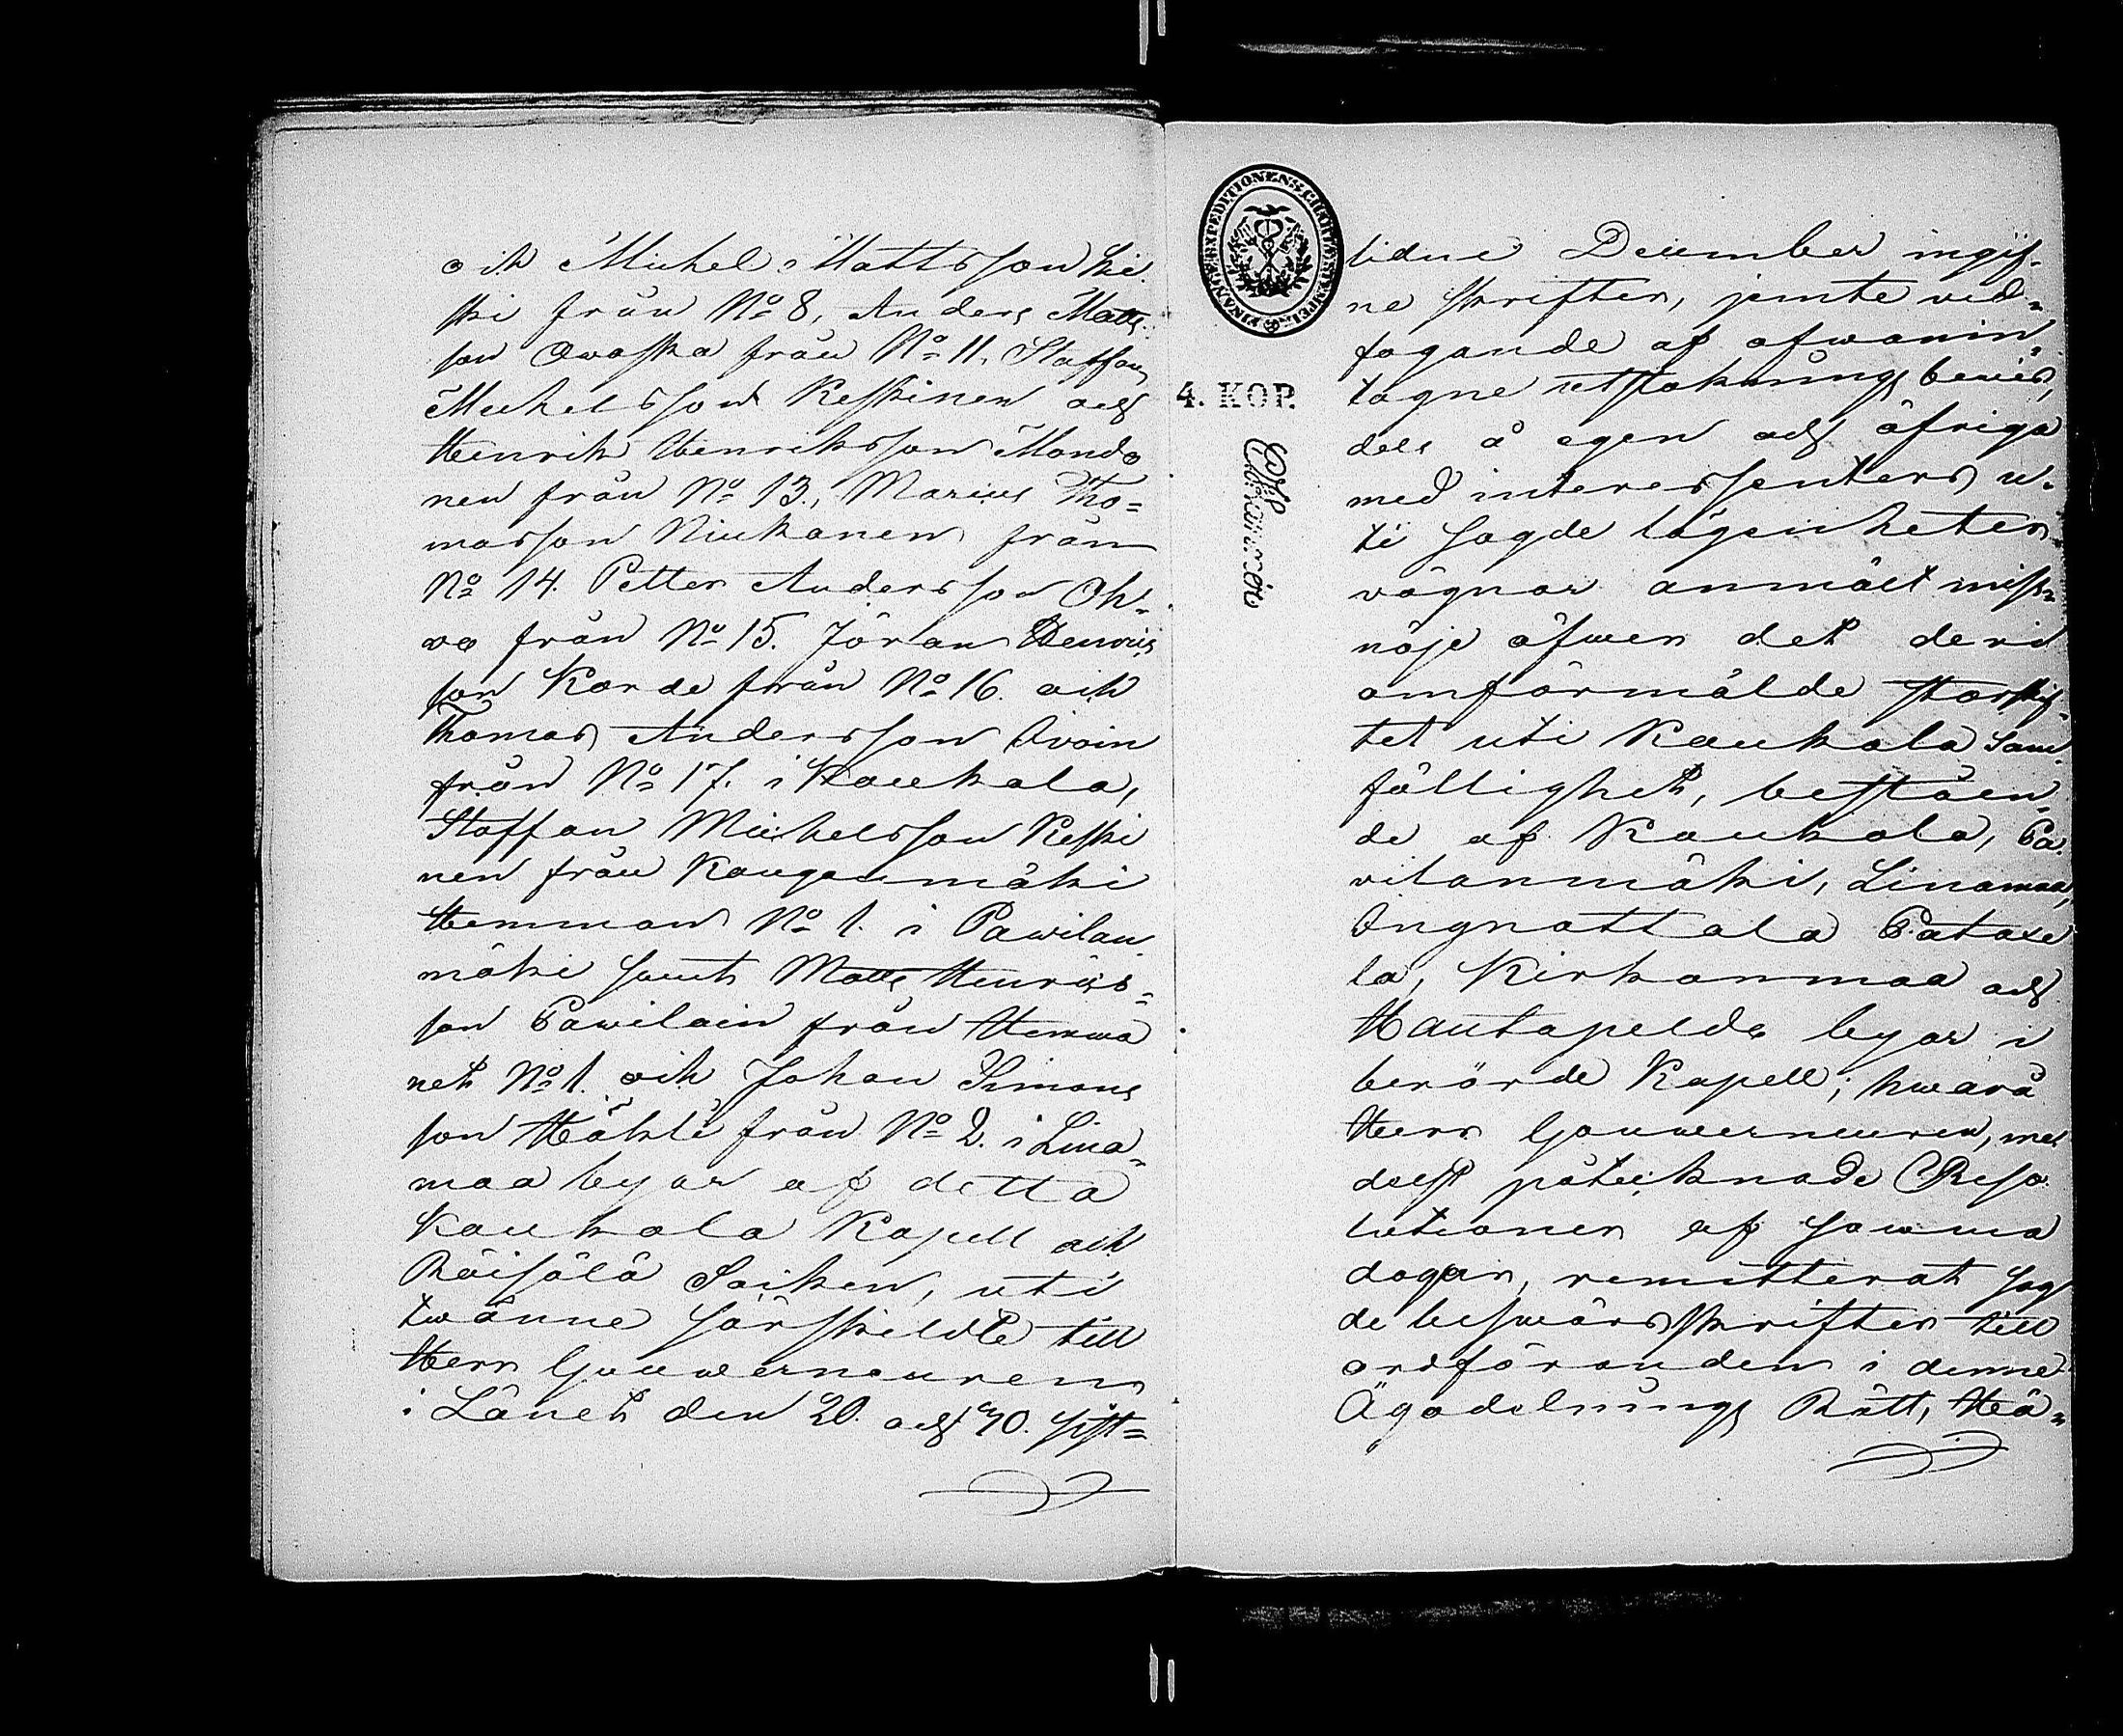 och Michel Mattsson Ki-
ski från No 8, Anders Matts
son Oraska från No 11, Staffan
Michelsson Keskinen och
Henrik Henriksson Mondo
nen från No 13., Marius Tho-
masson Niukanen från
No 14. Petter Andersson Oh-
vo från No 15. Jöran Henriks
son Korde från No 16. och
Thomas Andersson Avain
från No 17. i Kaukola,
Staffan Michelsson Keski
nen från Kangasmäki
Hemman No 1. i Pawilan
mäki samt Matts Henriks-
son Pawilain från Hemma
net No 1. och Johan Simons
son Häkli från No 2. i Lina-
maa byar af detta
Kaukola Kapell och
Räisälä Socken, uti
twänne särskildte till
Herr Gouverneuren
i Länet den 20. och 30. sist-
FINANCE-EXPEDITIONENS CHARTÆ STEMPEL
4. KOP.
lidne December ingif-
ne skrifter, jemte wid-
fogande af ofwanin-
tagne utstakningsbewis,
dels å egen och öfriga
med interessenters u-
ti sagde lägenheter
vägnar anmält miss-
nöje öfwer det deri
omförmälde storskif-
tet uti Kaukola Sam-
fällighet, beståen-
de af Kaukola, Pa-
vilanmäki, Linamaa,
Ongnattala Patoxe
la, Kirkonmaa och
Hautapelda byar i
berörde Kapell; hwarå
Herr Gouverneuren, me-
delst påtecknade Reso
lutioner af samma
dagar, remitterat sag
de beswärsskrifter till
ordföranden i denne
Ägodelnings Rätt, Hä-